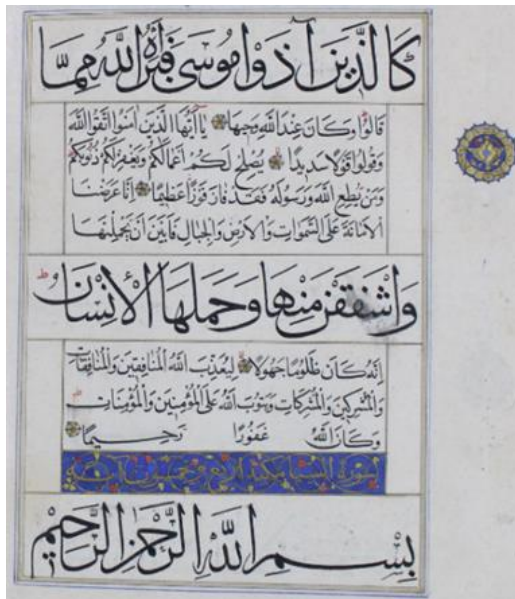 كَالَّذِينَ آذَوْا مُوسَى فَبَرَّأَهُ اللَّهُ مِمَّا
قَالُوا وَكَانَ عِنْدَ اللَّهِ وَجِيهًا يَا أَيُّهَا الَّذِينَ آمَنُوا اتَّقُوا اللَّهَ
وَقُولُوا قَوْلًا سَدِيدًا يُصْلِحْ لَكُمْ أَعْمَالَكُمْ وَيَغْفِرْ لَكُمْ ذُنُوبَكُمْ
وَمَنْ يُطِعِ اللَّهَ وَرَسُولَهُ فَقَدْ فَازَ فَوْزًا عَظِيمًا إِنَّا عَرَضْنَا
الْأَمَانَةَ عَلَى السَّمَوَاتِ وَالْأَرْضِ وَالْجِبَالِ فَأَبَيْنَ أَنْ يَحْمِلْنَهَا
وَأَشْفَقْنَ مِنْهَا وَحَمَلَهَا الْإِنْسَانُ
إِنَّهُ كَانَ ظَلُومًا جَهُولًا لِيُعَذِّبَ اللَّهُ الْمُنَافِقِينَ وَالْمُنَافِقَاتِ
وَالْمُشْرِكِينَ وَالْمُشْرِكَاتِ وَيَتُوبَ اللَّهُ عَلَى الْمُؤْمِنِينَ وَالْمُؤْمِنَاتِ
وَكَانَ اللَّهُ غَفُورًا رَحِيمًا
بِسْمِ اللَّهِ الرَّحْمَنِ الرَّحِيمِ